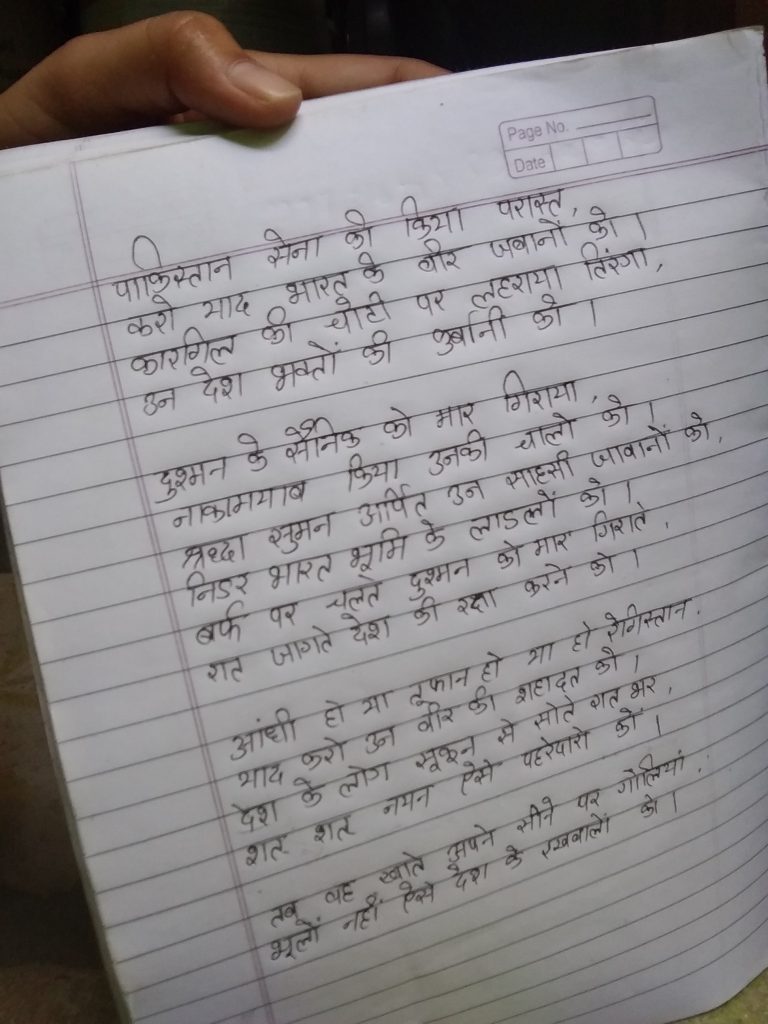 Page No.
Date
पाकिस्तान सेना को किया परास्त,
करो याद भारत के वीर जवानों को ।
कारगिल की चोटी पर लहराया तिरंगा,
उन देश भक्तों की कुर्बानी को ।
दुश्मन के सैनिक को मार गिराया,
नाकामयाब किया उनकी चालो को ।
श्रध्दा सुमन अर्पित उन साहसी जावानों को,
निडर भारत भूमि के लाडल्लों को ।
बर्फ पर चलते दुश्मन को मार गिराते,
रात जागते देश की रक्षा करने को ।
आंधी हो या तूफान हो या हो रेगिस्तान.
याद करो उन वीर की शहादत को ।
देश के लोग सूकून से सोते रात भर,
शत शत नमन ऐसे पहरेदारो कों ।
तब वह खाते अपने सीने पर गोलियां,
भूलों नहीं ऐसे देश के रखवालों को ।